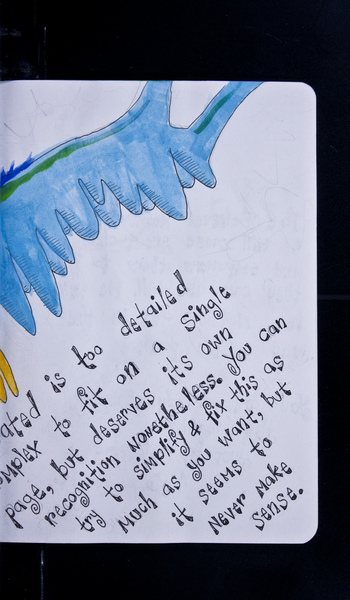 ated is too detailed
omplex to fit on a single
page, but deserves its own
recognition nonetheless. You can
try to simplify & fix this as
much as you want, but
it seems to
never make
sense.